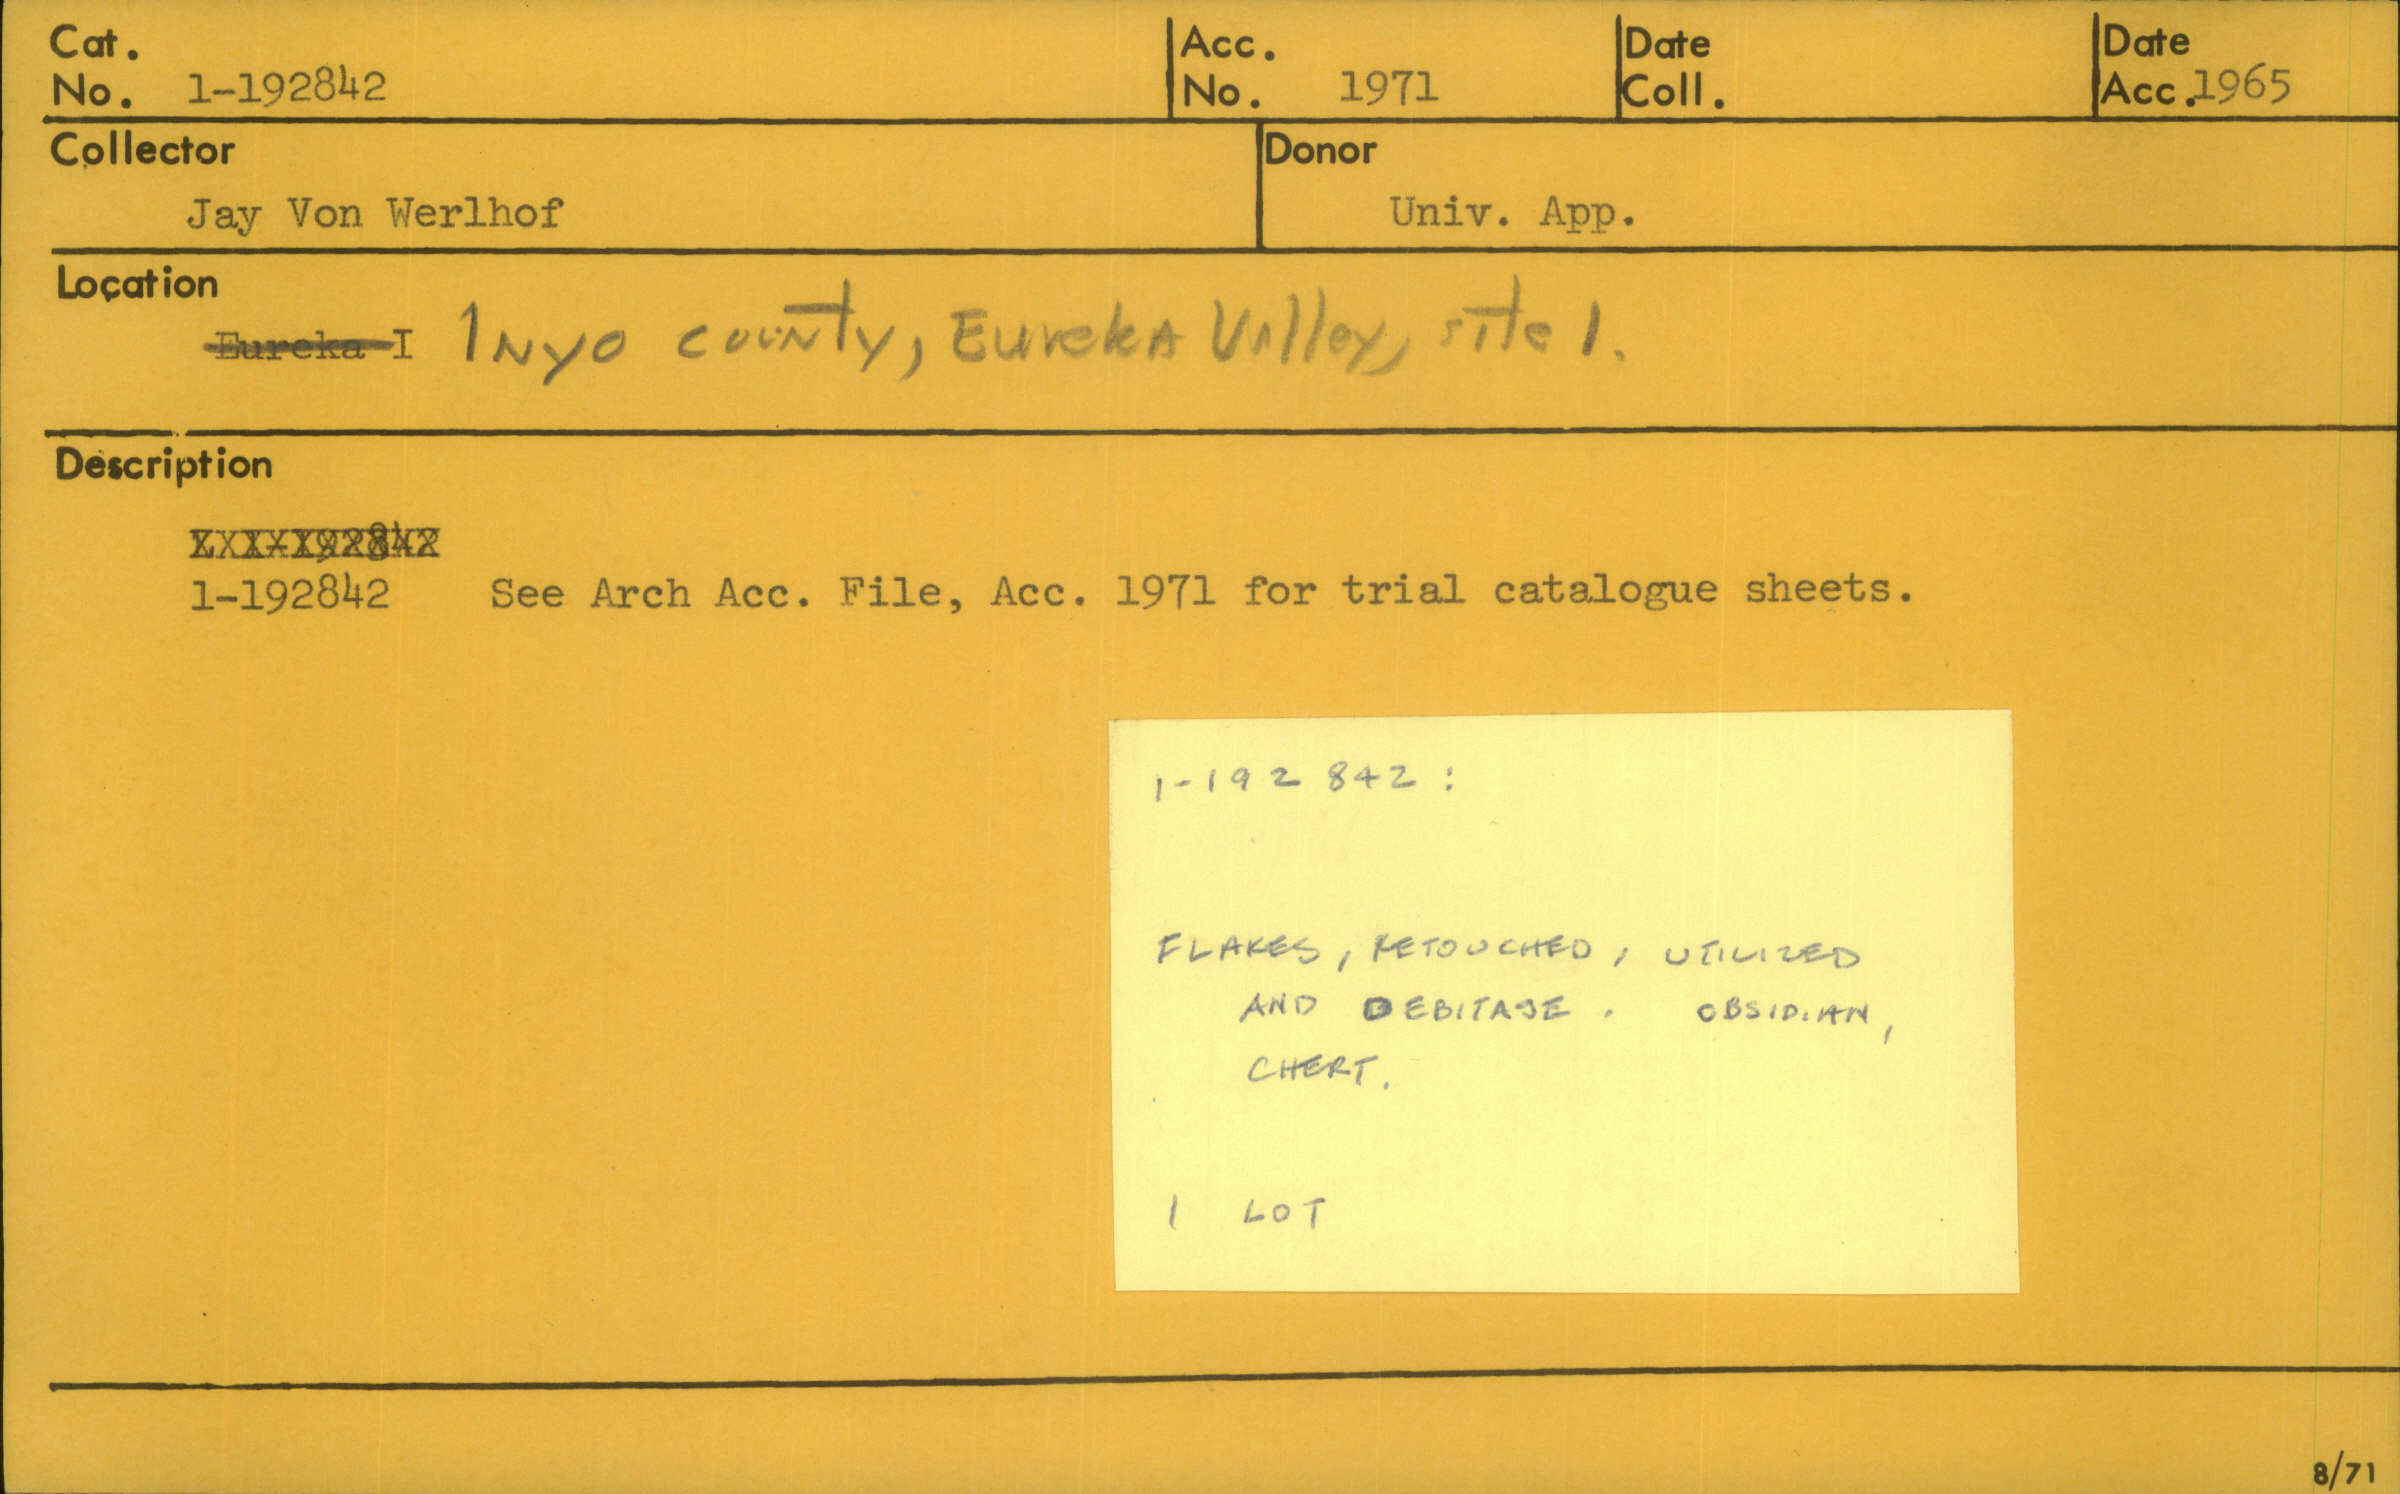 Cat. No. 1-192842 Acc. No. 1971 Date Coll. Date Acc. 1965
Collector Donor
Jay Von Werlhof Univ. App.
Location
Eureka I Inyo county, Eureka Valley, site 1.
Description
1-192842
1-192842 See Arch Acc. File, Acc. 1971 for trial catalogue sheets.
1-192842:
FLAKES, RETOUCHED, UTILIZED
AND DEBITAGE. OBSIDIAN,
CHERT.
1 LOT
8/71